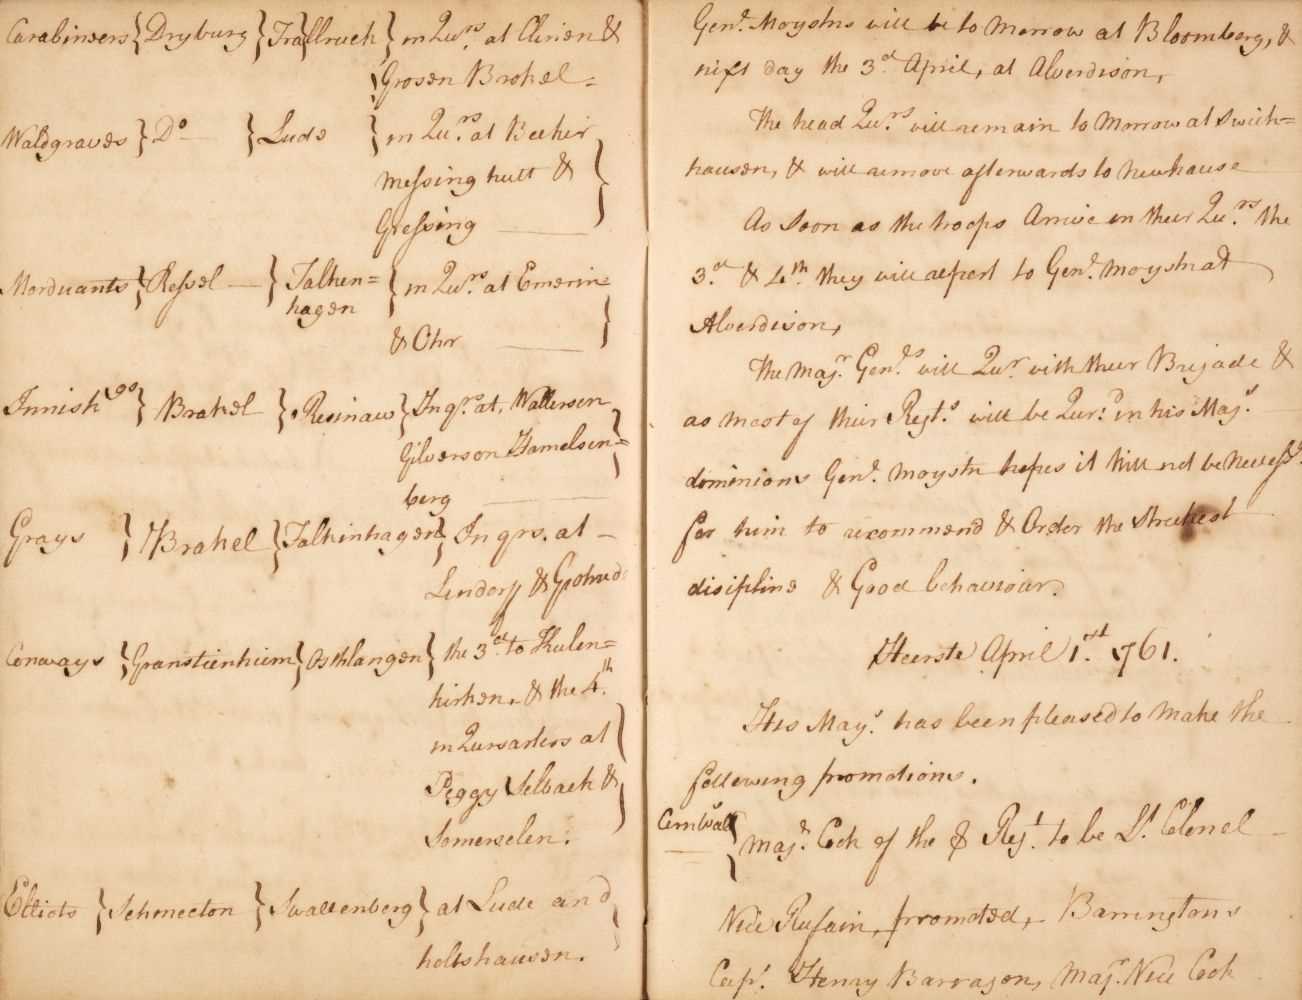 Carabineers } Dryburg } Trallruck } in Qurs. at Clirien &
Grosen Brokel =
Waldgraves } Do — } Lude } in Qurs. at Beeker
Messing hutt &
Gressing —
Morduants } Ressel — } Talken=
hagen } in Qurs. at Emerin=
& Ohr —
Innishgs } Brakel } Resinaw } In qrs. at, Wallersen
Gilverson Hamelsen=
berg —
Grays } Brakel } Talkinhagen } In qrs. at —
Lendorf &
Conways } Granstienhiem } Osthlangen } the 3d. to Kulen=
kirken, & the 4th.
in Qursarters at
Peggy Selbach &
Somerselen.
Elliots } Schmecton } Swallenberg } at Lude and
holtshausen.
Genl. Moystns will be to Morrow at Bloomberg, &
nixt day the 3d. April, at Alverdison,
The head Qurs. will remain to Morrow at Swick=
hausen, & will remove afterwards to Newhause
As Soon as the troops Arrive in their Qurs. the
3d. & 4th. they will report to Genl. Moystn at
Alverdison,
The Majr. Genls. will Qur. with their Brigade &
as most of their Regts. will be Qurd. in his Majs.
dominions Genl. Moystn hopes it will not be Necessy.
for him to recommend & Order the Strickest
disipline & Good behaviour.
Heerste April 1st. 1761.
His Mays. has been pleased to Make the
following promotions.
Cornwall } Majr. Cock of the Regt. to be Lt. Colonel —
Vice Rusain, promoted, — Barringtons
Capt. Henry Barragon, Majr. Vice Cock